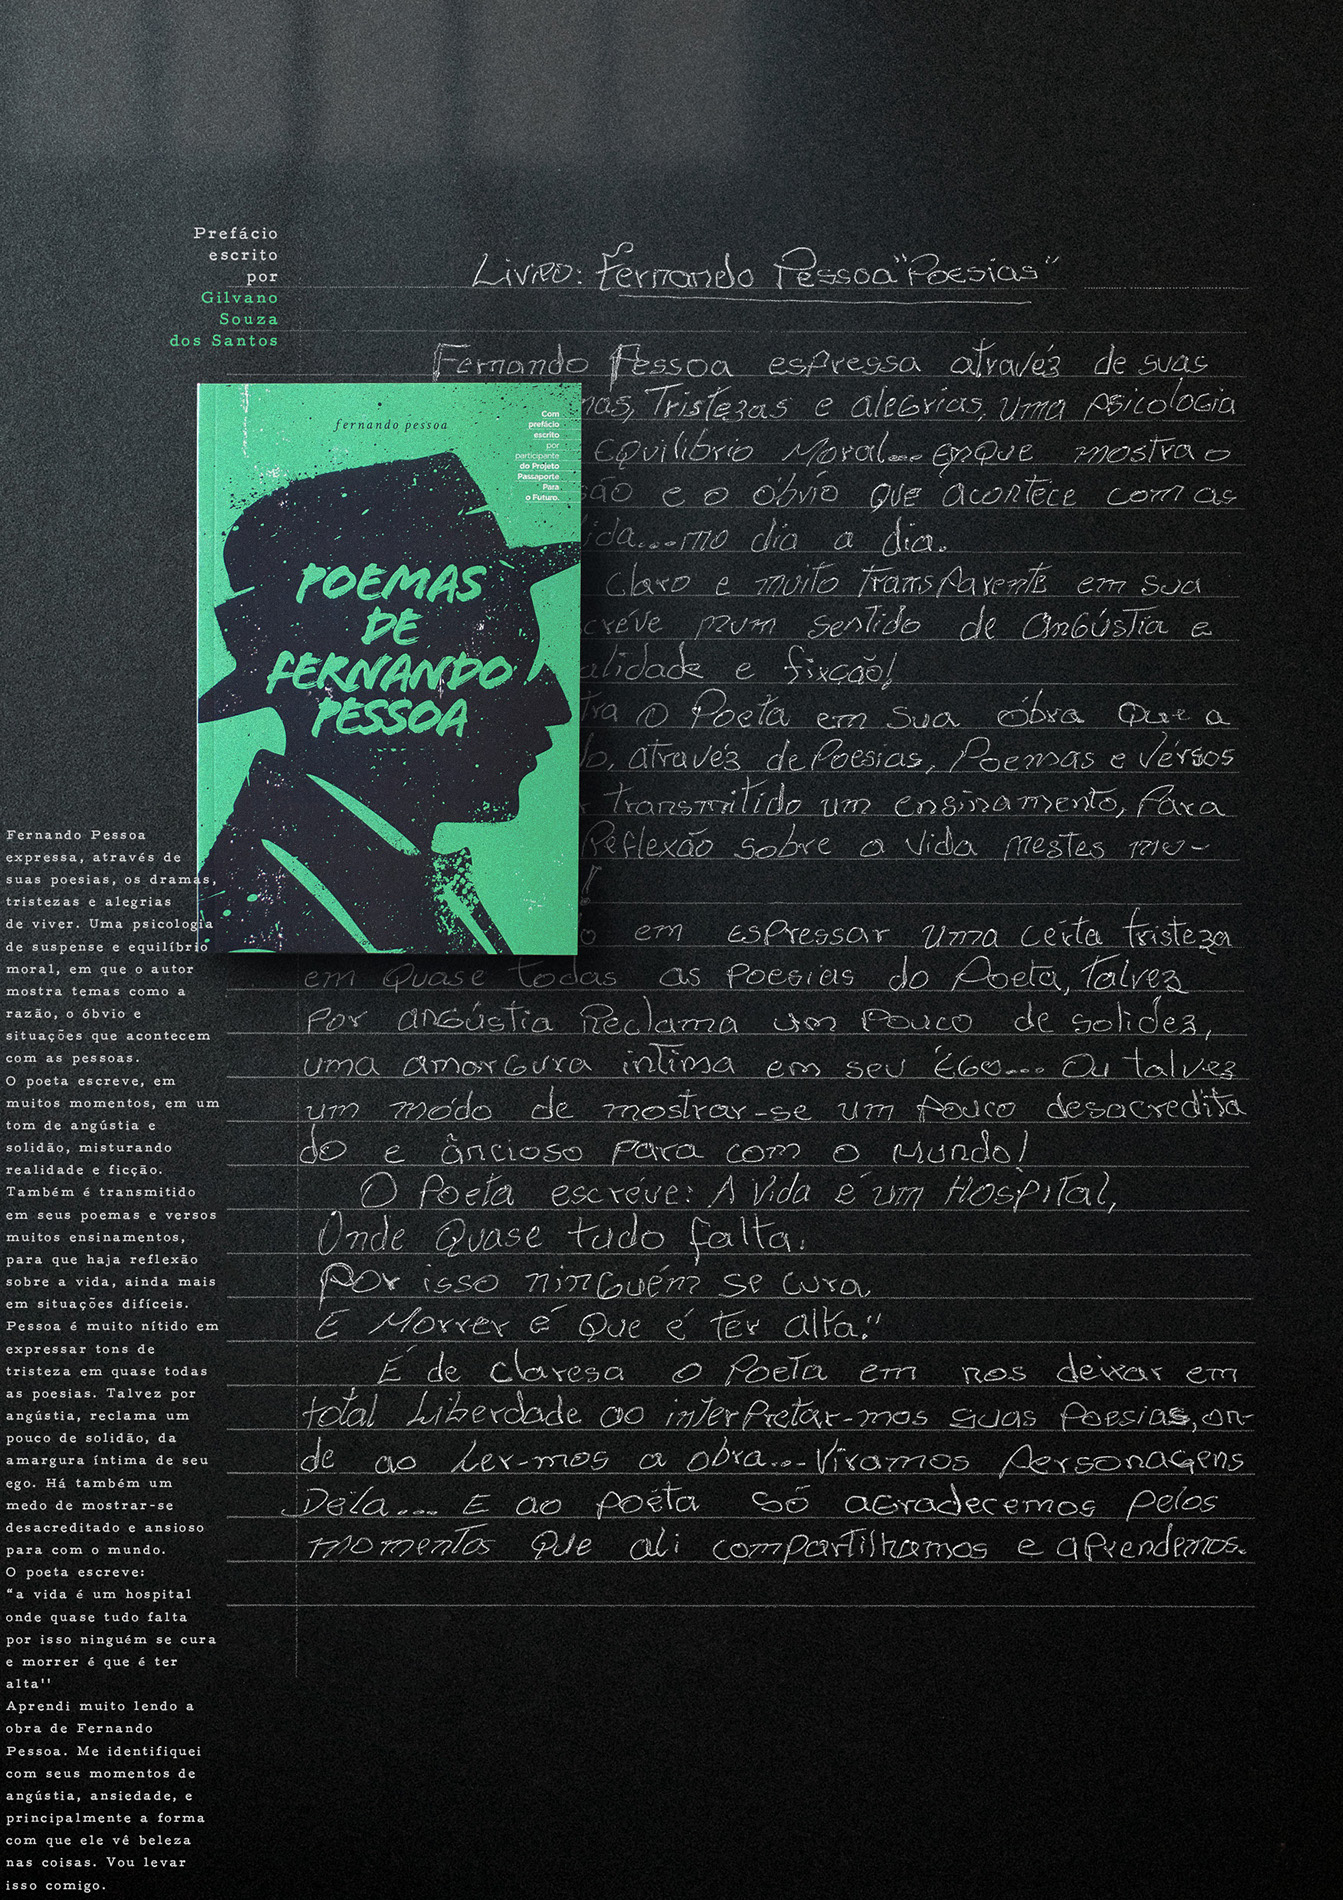 Prefácio
escrito
por
Gilvano
Souza
dos Santos
Livro: Fernando Pessoa "Poesias"
Fernando Pessoa espressa através de suas
mas, Tristezas e alegrias, uma psicologia
Equilíbrio Moral... emque mostra o
são e o óbvio que acontece com as
ida...no dia a dia.
claro e muito transparente em sua
creve num sentido de angústia e
alidade e fixção!
tra o Poeta em sua óbra que a
do, através de Poesias, Poemas e versos
r transmitido um ensinamento, para
Reflexão sobre a vida nestes mo-
!
o em espressar uma certa tristeza
em quase todas as poesias do Poeta, talvez
por angústia Reclama um pouco de solidez,
uma amargura intima em seu Ego... Ou talvez
um módo de mostrar-se um pouco desacredita
do e âncioso para com o Mundo!
O Poeta escréve: A vida é um Hospital,
Onde quase tudo falta.
Por isso ninguém se cura
E Morrer é que é ter alta."
É de claresa o Poeta em nos deixar em
total Liberdade ao interpretar-mos suas Poesias, on-
de ao Ler-mos a obra... Viramos Personagens
Dela... E ao poéta só agradecemos pelos
momentos que ali compartilhamos e aprendemos.
fernando pessoa
Com
prefácio
escrito
por
participante
do Projeto
Passaporte
Para
o Futuro.
POEMAS
DE
FERNANDO
PESSOA
Fernando Pessoa
expressa, através de
suas poesias, os dramas,
tristezas e alegrias
de viver. Uma psicologia
de suspense e equilíbrio
moral, em que o autor
mostra temas como a
razão, o óbvio e
situações que acontecem
com as pessoas.
O poeta escreve, em
muitos momentos, em um
tom de angústia e
solidão, misturando
realidade e ficção.
Também é transmitido
em seus poemas e versos
muitos ensinamentos,
para que haja reflexão
sobre a vida, ainda mais
em situações difíceis.
Pessoa é muito nítido em
expressar tons de
tristeza em quase todas
as poesias. Talvez por
angústia, reclama um
pouco de solidão, da
amargura íntima de seu
ego. Há também um
medo de mostrar-se
desacreditado e ansioso
para com o mundo.
O poeta escreve:
“a vida é um hospital
onde quase tudo falta
por isso ninguém se cura
e morrer é que é ter
alta''
Aprendi muito lendo a
obra de Fernando
Pessoa. Me identifiquei
com seus momentos de
angústia, ansiedade, e
principalmente a forma
com que ele vê beleza
nas coisas. Vou levar
isso comigo.